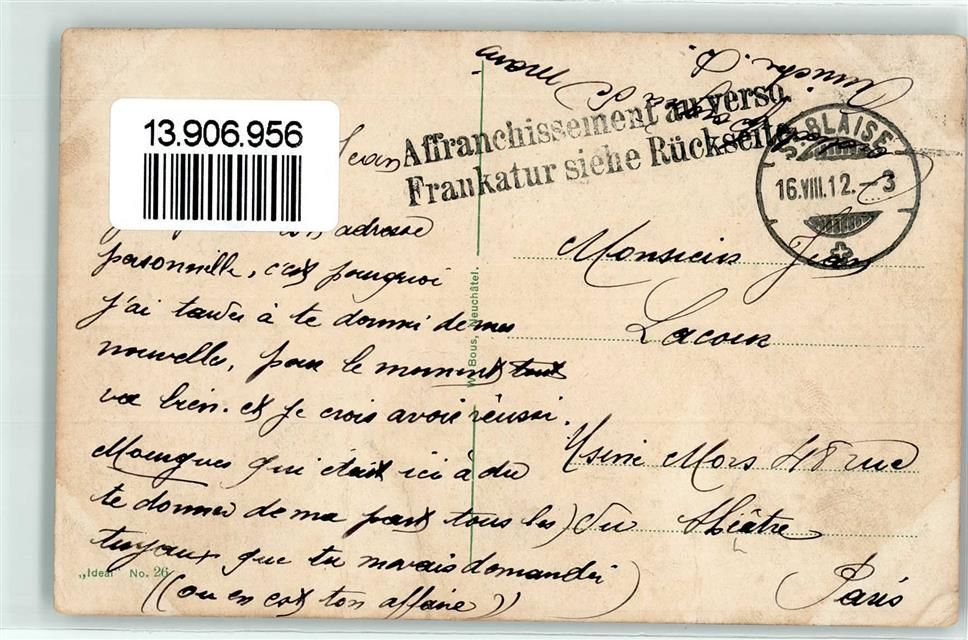 13.906.956
Affranchissement au verso.
Frankatur siehe Rückseite.
ST. BLAISE
16.VIII.12.-3
Jean
adresse
personnelle, c'est pourquoi
j'ai tarder à te donner de mes
nouvelles, pour le moment tout
va bien. et je crois avoir réussi.
Mourgues qui était ici à du
te donner de ma part tous les
tuyaux que tu m'avais demander
((ou en est ton affaire))
Monsieur Jean
Lacour
Usine Mors 48 rue
du théâtre
Paris
W. Bous, Neuchâtel.
„Ideal" No. 26